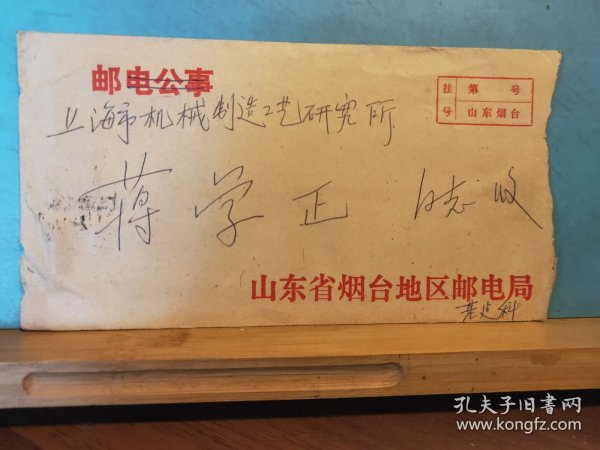 邮电公事
挂号
第 号
山东烟台
上海市机械制造工艺研究所
蒋学正 同志收
山东省烟台地区邮电局
基建科
孔夫子旧书网
www.kongfz.com